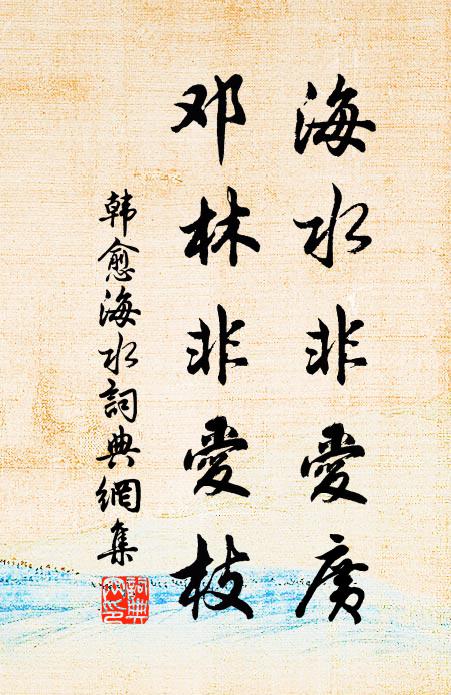 海水非愛廣
邓林非愛枝
韩愈海水詞典網集